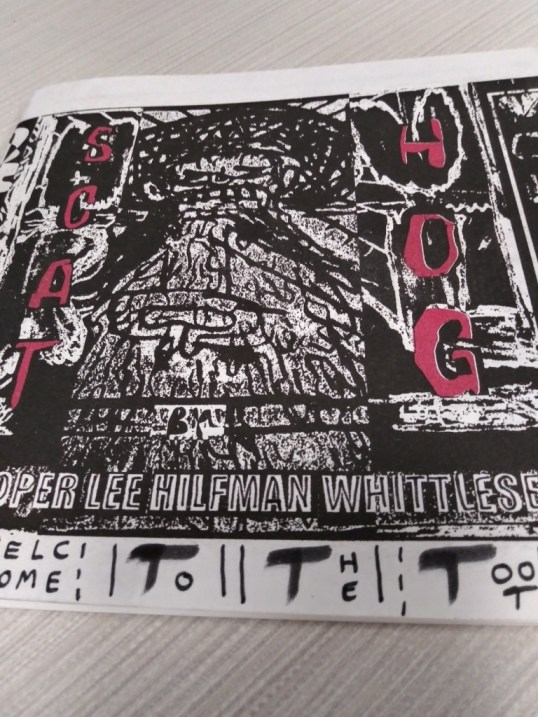 SCAT
HOG
BM
OPER LEE HILFMAN WHITTLESE
ELC
OME TO THE TOOT